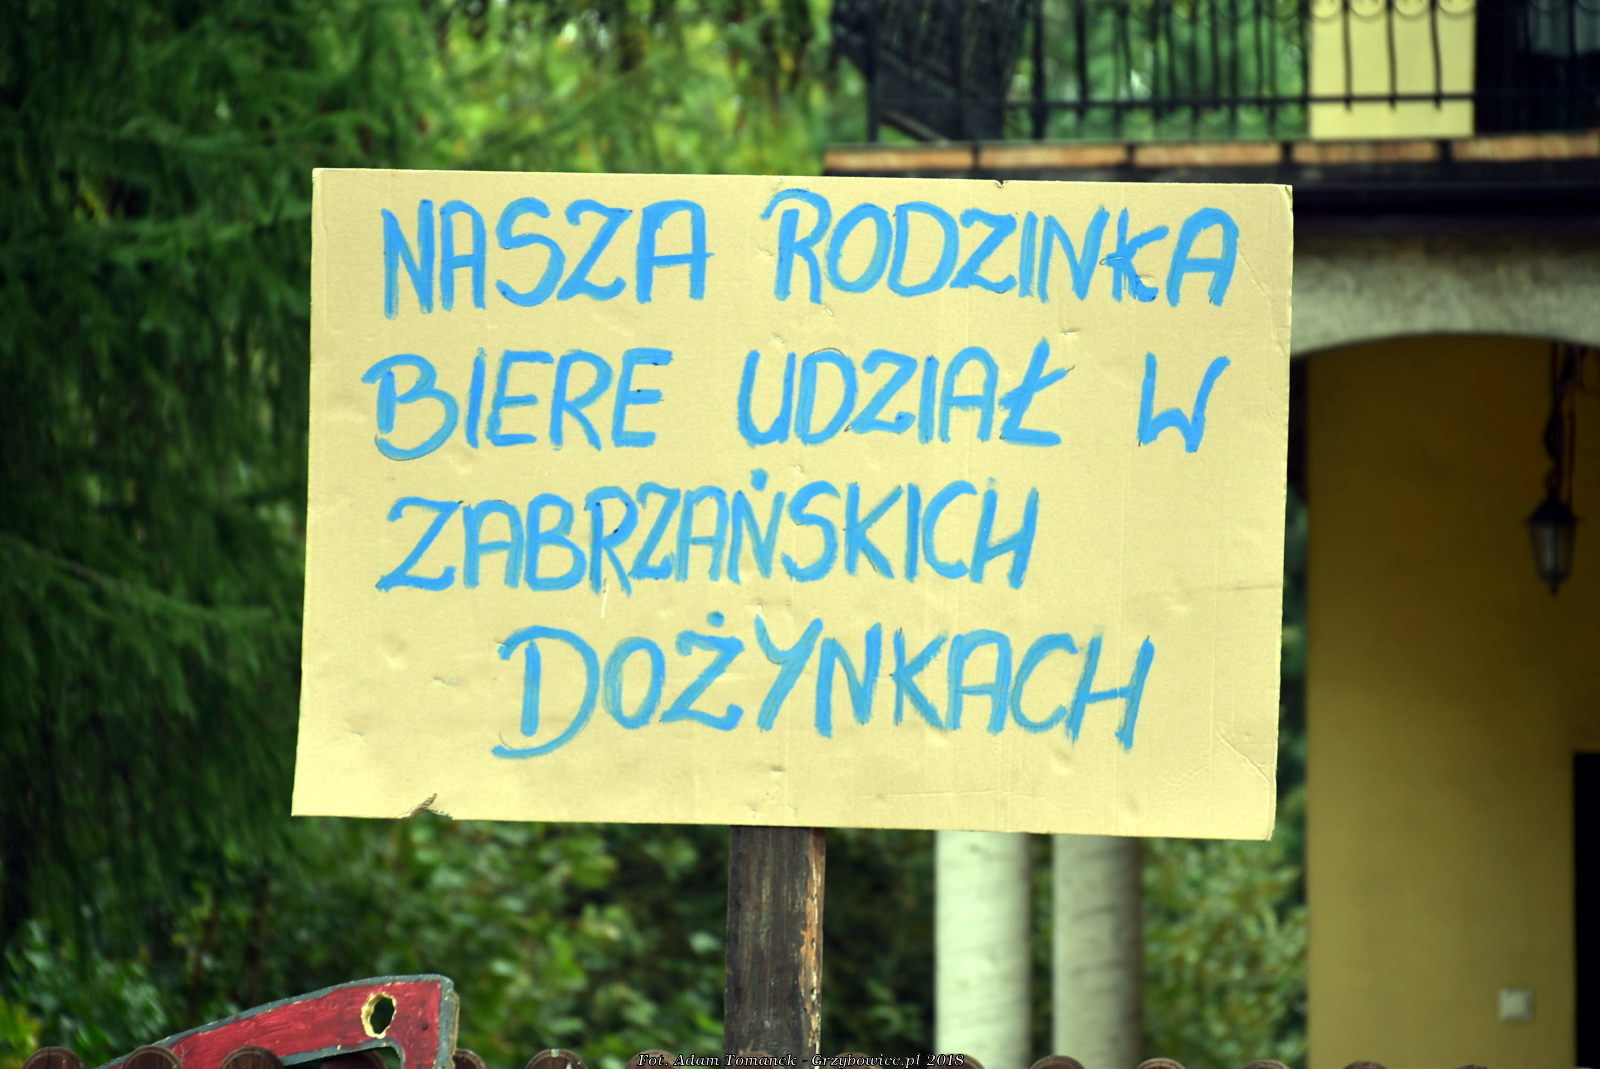 NASZA RODZINKA
BIERE UDZIAŁ W
ZABRZAŃSKICH
DOŻYNKACH
Fot. Adam Tomanek - Grzybowice.pl 2018